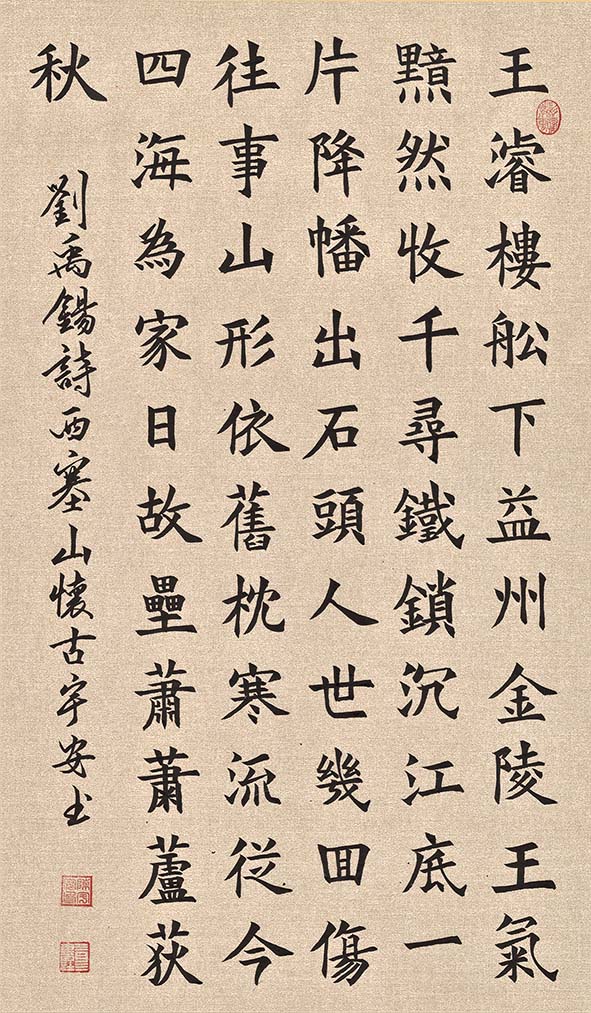 王濬樓舩下益州金陵王氣
黯然收千尋鐵鎖沉江底一
片降幡出石頭人世幾囬傷
往事山形依舊枕寒流従今
四海為家日故壘蕭蕭蘆荻
秋
劉禹錫詩西塞山懷古宇安书